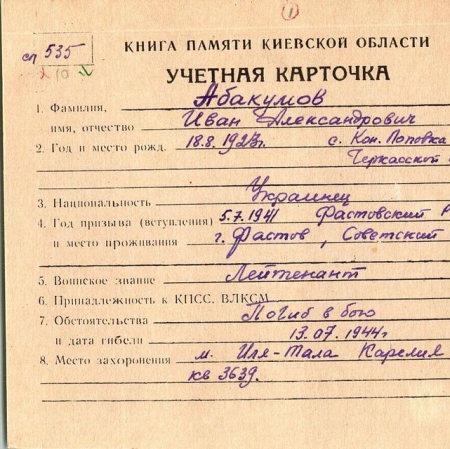 1
сп 535
10
КНИГА ПАМЯТИ КИЕВСКОЙ ОБЛАСТИ
УЧЕТНАЯ КАРТОЧКА
1. Фамилия, Абакумов
имя, отчество Иван Александрович
2. Год и место рожд. 18.8.1923г. с. Кон. Поповка
Черкасской
3. Национальность Украинец
4. Год призыва (вступления) 5.7.1941 Фастовский Р
и место проживания г. Фастов, Советский
5. Воинское звание Лейтенант
6. Принадлежность к КПСС, ВЛКСМ
7. Обстоятельства Погиб в бою
и дата гибели 13.07.1944г
8. Место захоронения м. Иля-Тала Карелия
кв 3639.